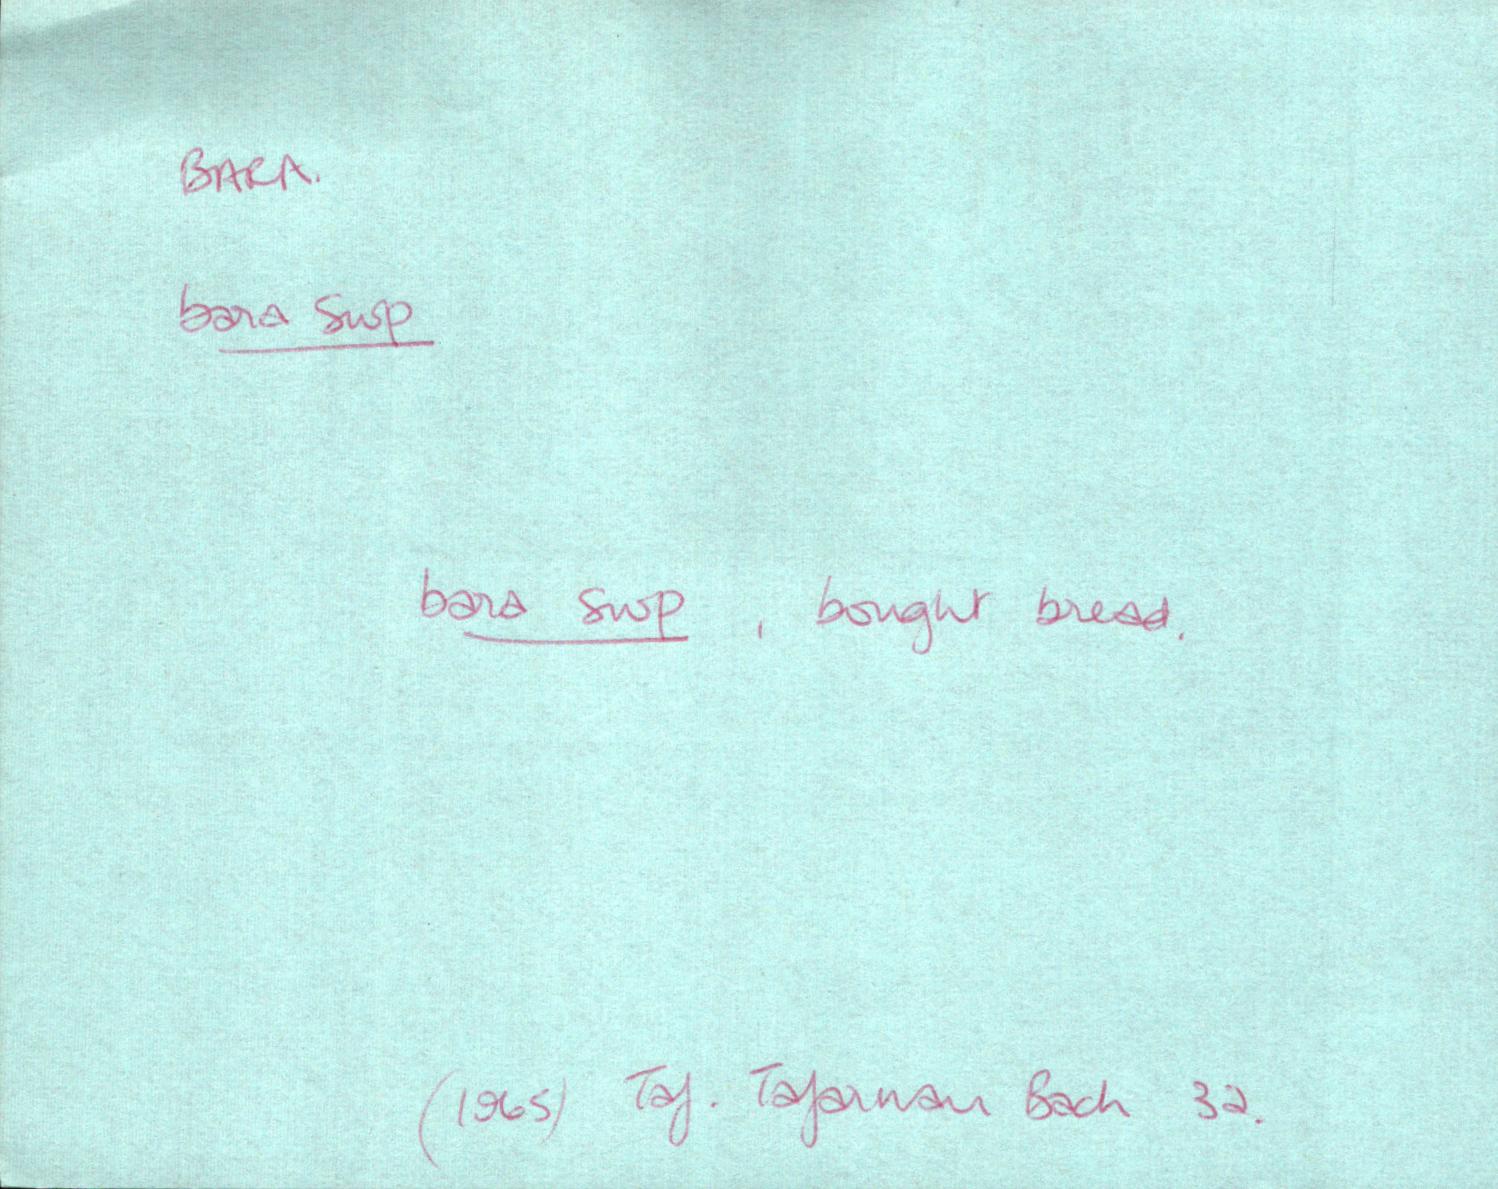 BARA.
bara swp
bara swp, bought bread.
(1965) Taf. Tafarnau Bach 32.